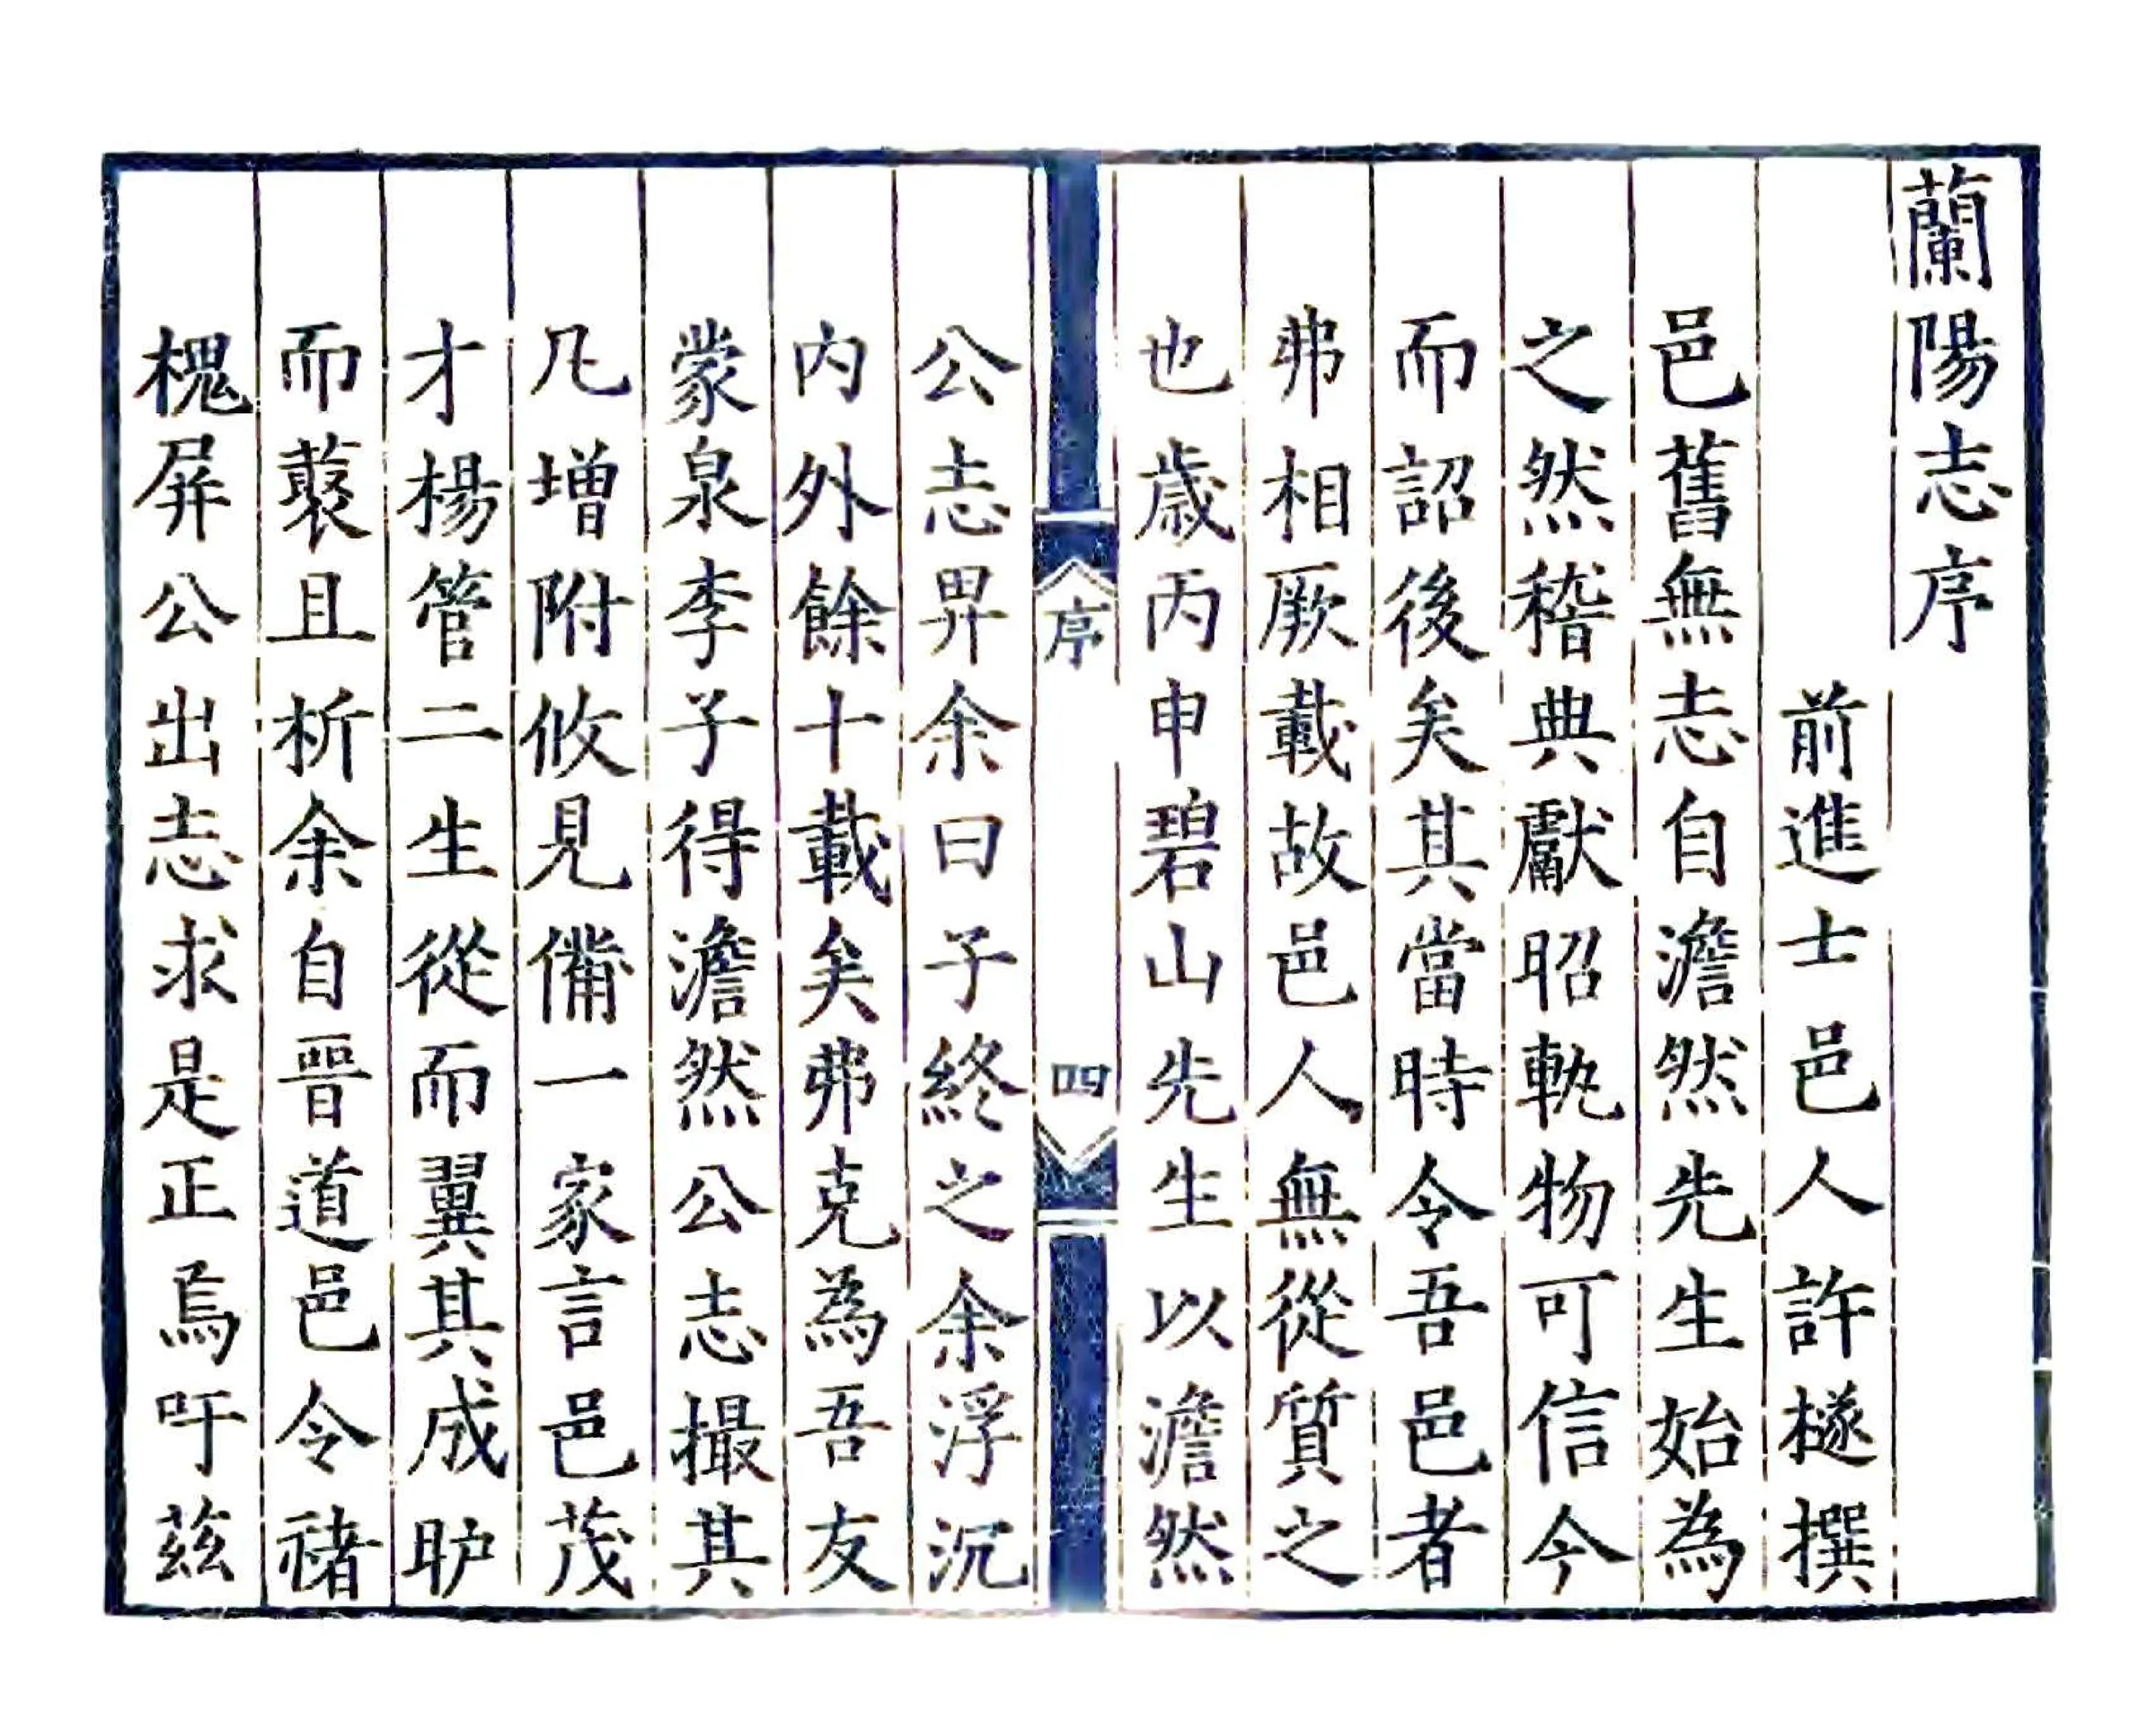 蘭陽志序
前進士邑人許檖撰
邑舊無志自澹然先生始為
之然稽典獻昭軌物可信今
而詔後矣其當時令吾邑者
弗相厥載故邑人無從質之
也歲丙申碧山先生以澹然
序
四
公志畀余曰子終之余浮沉
內外餘十載矣弗克為吾友
蒙泉李子得澹然公志撮其
凡增附攸見備一家言邑茂
才楊管二生從而翼其成
而褧且析余自晉道邑令禇
槐屏公出志求是正焉吁茲